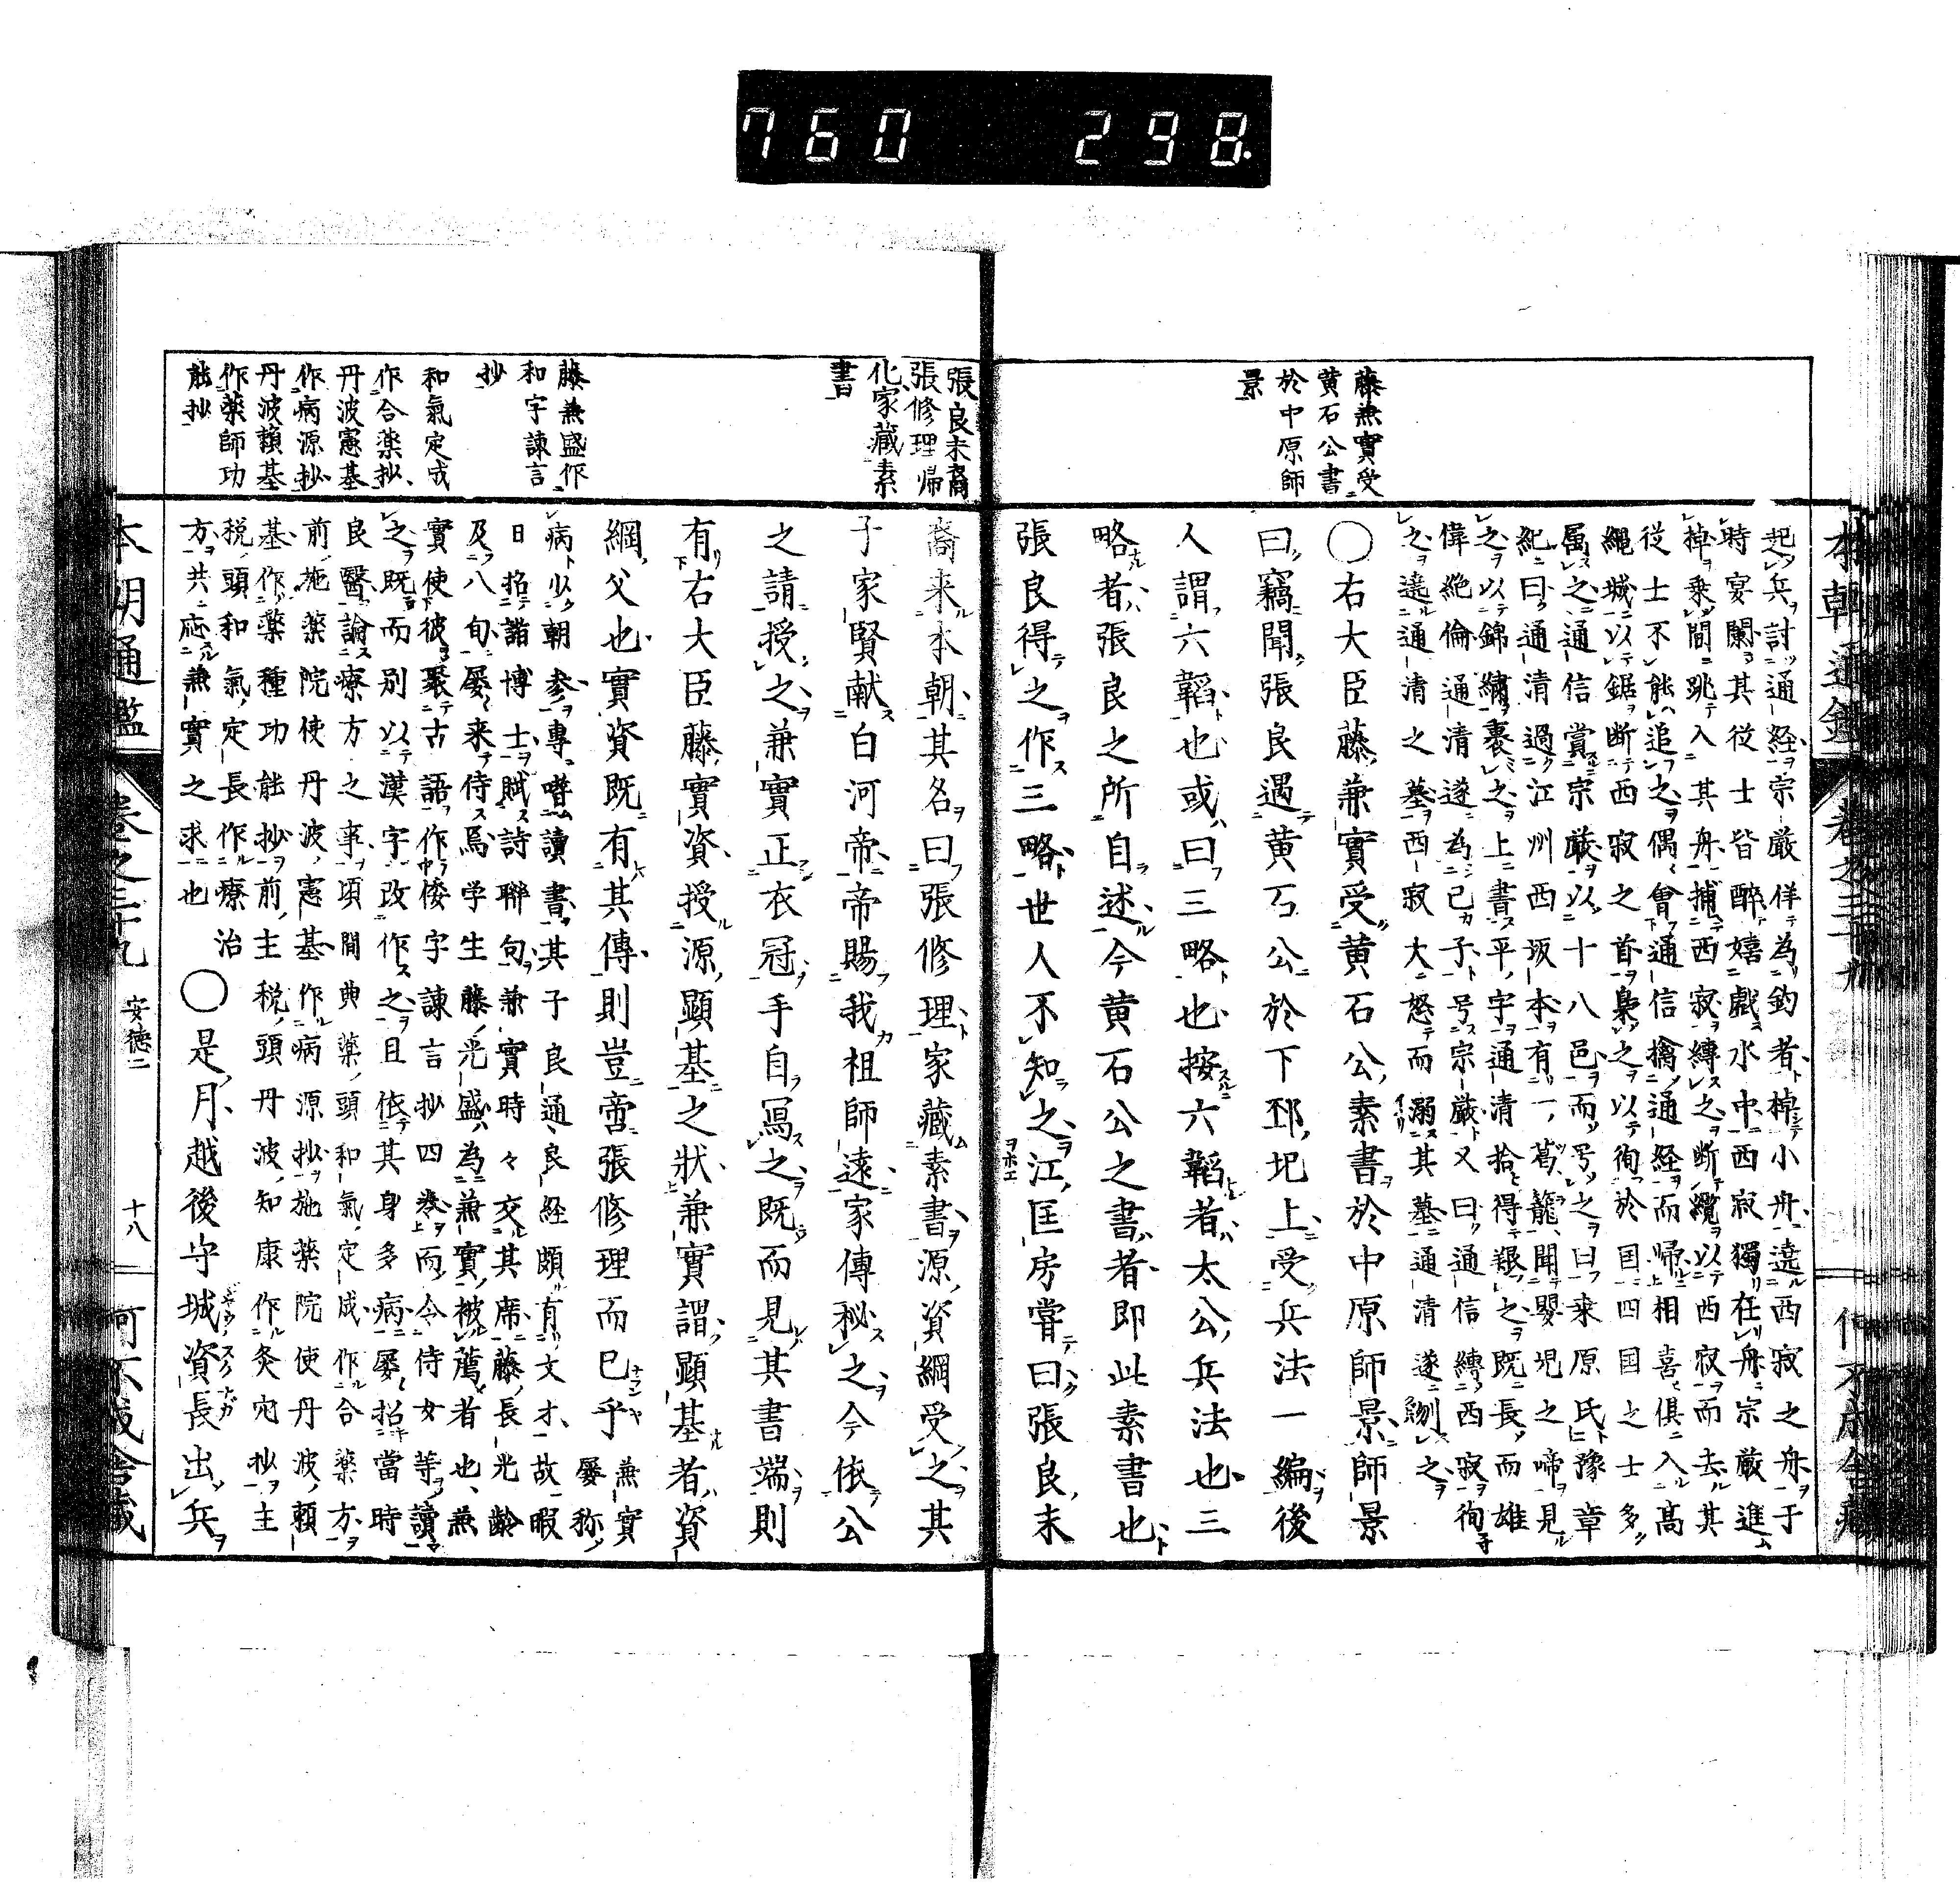 760 298.
藤兼實受
黄石公書
於中原師
景
起兵討通経宗厳佯為釣者棹小舟遶西寂之舟于
時宴闌其従士皆醉嬉戯水中西寂獨在舟宗厳進
棹乗間跳入其舟捕西寂縛之断纜以西寂而去其
従士不能追之偶會通信擒通経而帰相喜倶入高
縄城以鋸断西寂之首梟之以徇於国四国之士多
属之通信賞宗厳以十八邑而号之曰来原氏豫章
紀曰通清過江州西坂本有一葛籠聞嬰児之啼見
之以錦繍裹之上書平字通清拾得艱之既長而雄
偉絶倫通清遂為己子号宗厳又曰通信縛西寂徇
之遶通清之墓西寂大怒而溺其墓通清遂剜之
〇右大臣藤兼實受黄石公素書於中原師景師景
曰竊聞張良遇黄石公於下邳圯上受兵法一編後
人謂六韜也或曰三略也按六韜者太公兵法也三
略者張良之所自述今黄石公之書者即此素書也
張良得之作三略世人不知之江匡房嘗曰張良末
張良末裔
張修理帰
化家藏素
書
藤兼盛作
和字諫言
抄
和氣定成
作合薬抄
丹波憲基
作病源抄
丹波頼基
作薬師功
能抄
裔来本朝其名曰張修理家藏素書源資綱受之其
子家賢献白河帝帝賜我祖師遠家傳秘之今依公
之請授之兼實正衣冠手自冩之既而見其書端則
有右大臣藤實資授源顕基之狀兼實謂顕基者資
綱父也實資既有其傳則豈啻張修理而已乎兼實屡称
病少朝参専嗜讀書其子良通良経頗有文才故暇
日招諸博士賦詩聯句兼實時々交其席藤長光齢
及八旬屡来侍焉学生藤光盛為兼實被薦者也兼
實使彼聚古語作倭字諫言抄四巻而令侍女等讀
之既而別以漢字改作之且依其身多病屡招當時
良醫論療方之事頃間典薬頭和氣定成作合薬方
前施薬院使丹波憲基作病源抄施薬院使丹波頼
基作薬種功能抄前主税頭丹波知康作灸穴抄主
税頭和氣定長作療治
方共応兼實之求也〇是月越後守城資長出兵
本朝通鑑 巻之三十九 安徳二 十八